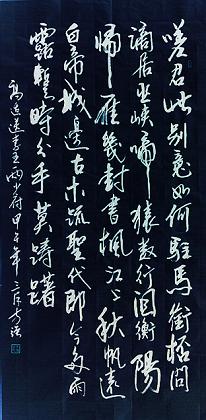 嗟君此別意如何駐馬銜杯問
謫居巫峽啼猿數行淚衡陽
歸雁幾封書楓江上秋帆遠
白帝城邊古木疏聖代即今多雨
露暫時分手莫躊躇
高適送李王兩少府甲午年